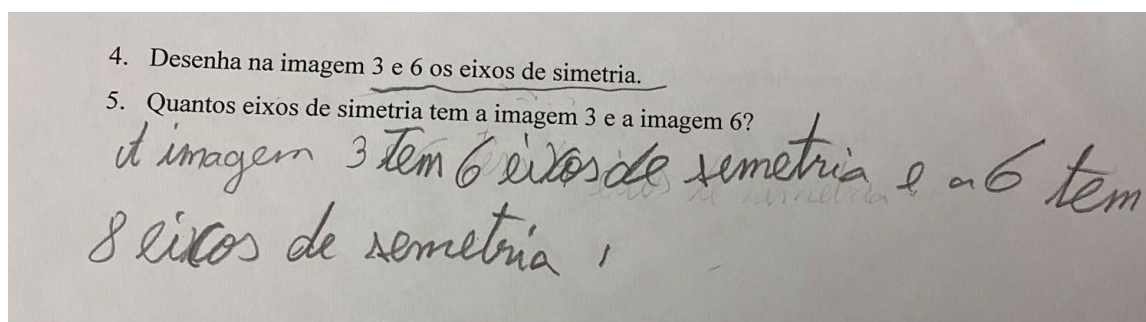 4. Desenha na imagem 3 e 6 os eixos de simetria.
5. Quantos eixos de simetria tem a imagem 3 e a imagem 6?
A imagem 3 tem 6 eixos de semetria e a 6 tem
8 eixos de semetria